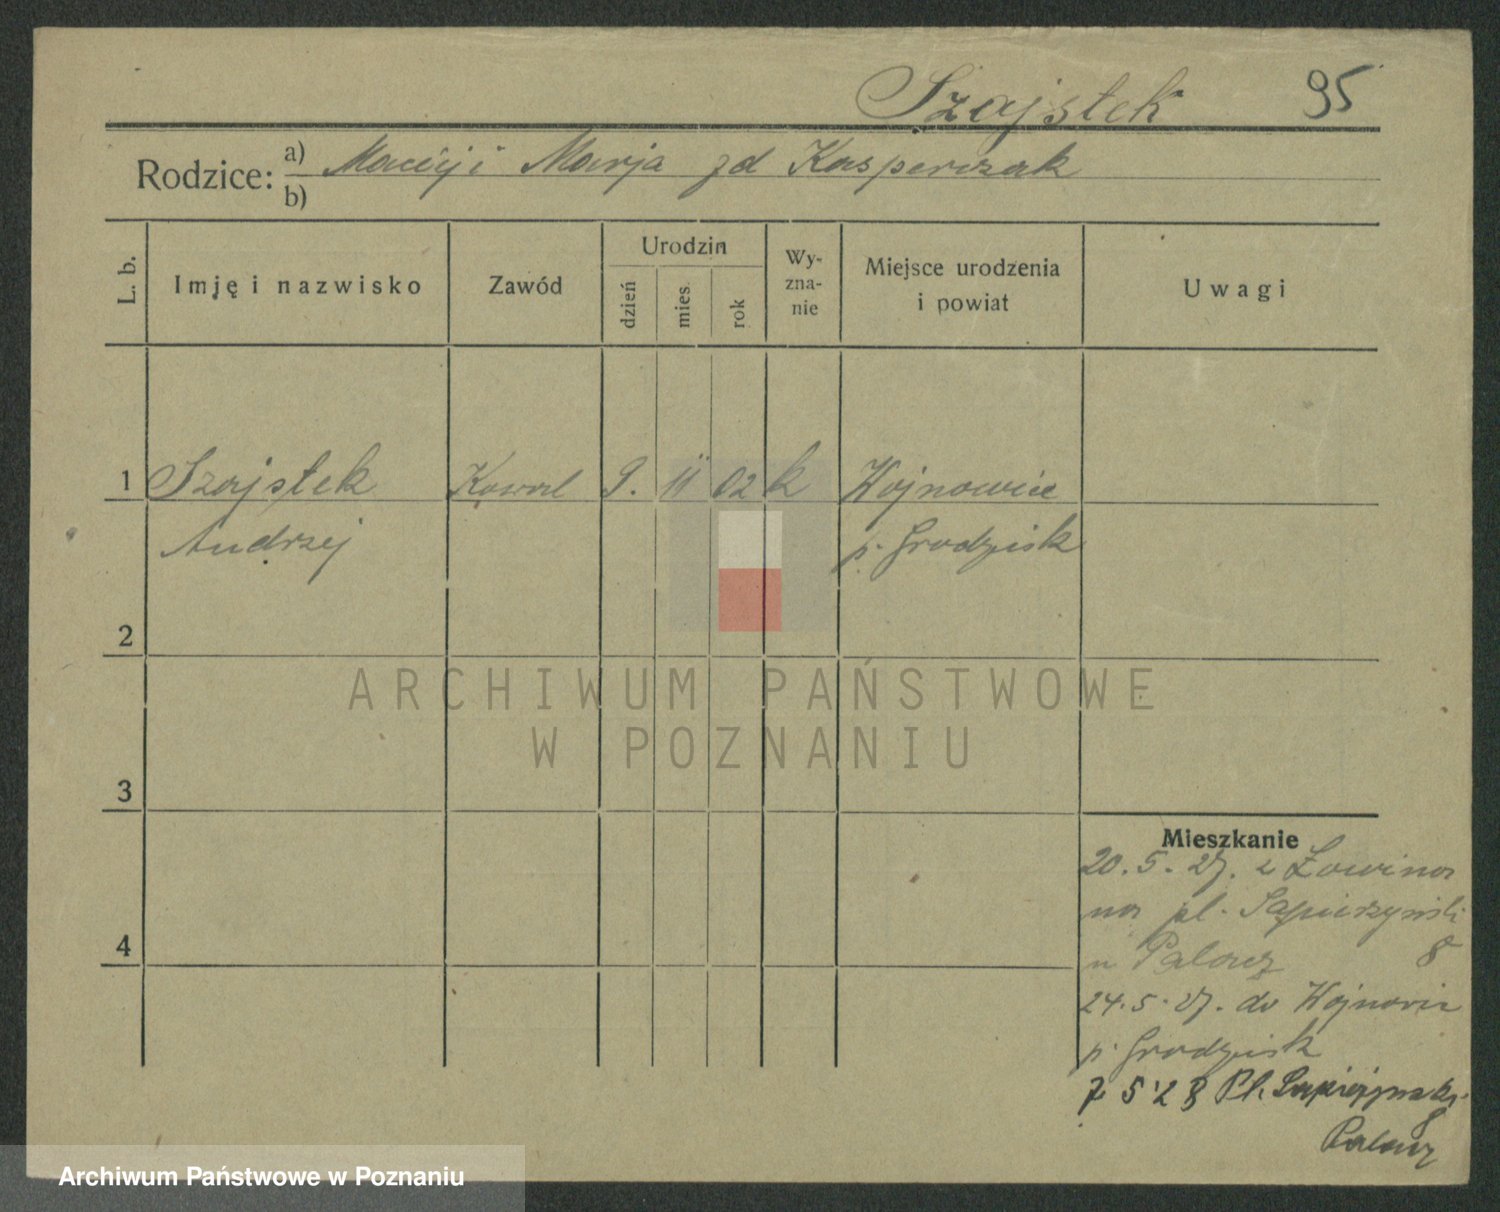 Szajstek 95
Rodzice: a) Maciej i Marja zd Kasperczak
b)
L. b. Imję i nazwisko Zawód Urodzin dzień mies. rok Wy-zna-nie Miejsce urodzenia i powiat Uwagi
1 Szajstek Kowal 9. 11 02 k Wojnowice
Andrzej p. Grodzisk
2
3
4
Mieszkanie
20.5.27. z Łowina
na pl. Sapieżyński
u Palacz 8
24.5.27. do Wojnowic
p. Grodzisk
7 5 28 Pl. Sapieżyński
8
Palacz
ARCHIWUM PAŃSTWOWE
W POZNANIU
Archiwum Państwowe w Poznaniu